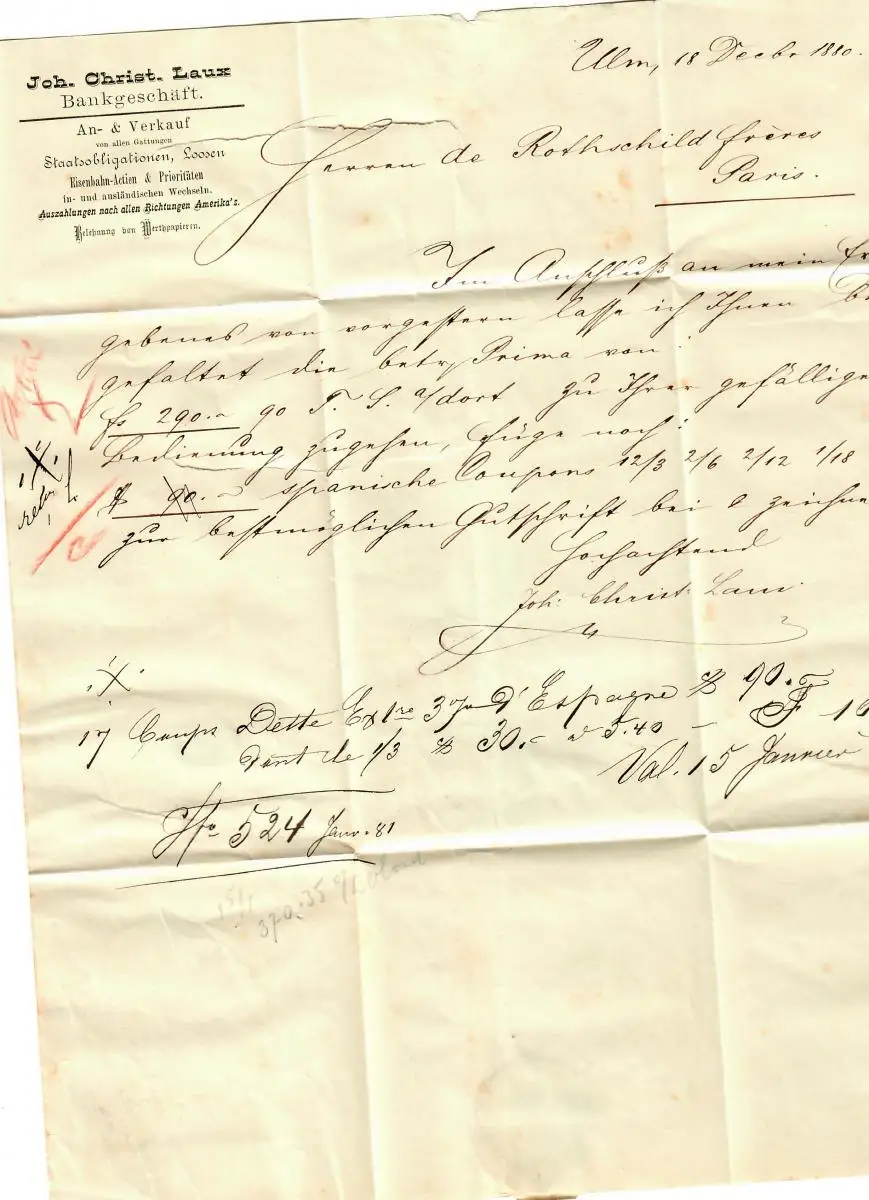 Joh. Christ. Laux
Bankgeschäft.
An- & Verkauf
von allen Gattungen
Staatsobligationen, Loosen
Eisenbahn-Actien & Prioritäten
in- und ausländischen Wechseln.
Auszahlungen nach allen Richtungen Amerika's.
Belehnung von Werthpapieren.
Ulm, 18 Decbr 1880.
Herren de Rothschild frères
Paris.
Im Anschluß an mein Er
gebenes von vorgestern lasse ich Ihnen
gefaltet die betr. Prima von:
fs 290.- 90 T. S. a/dort zu Ihrer gefällige
Bedienung zugehen, füge noch:
90.- spanische Coupons 12/3 2/6 2/12 1/18
zur bestmöglichen Gutschrift bei & zeichne
Hochachtend
Joh. Christ. Laux
17 Coups Dette Extre 3% d'Espagne 90.-
dont de 1/3 30.- a 5.40 -
Val. 15 Janvier
524 Janv. 81
370.35